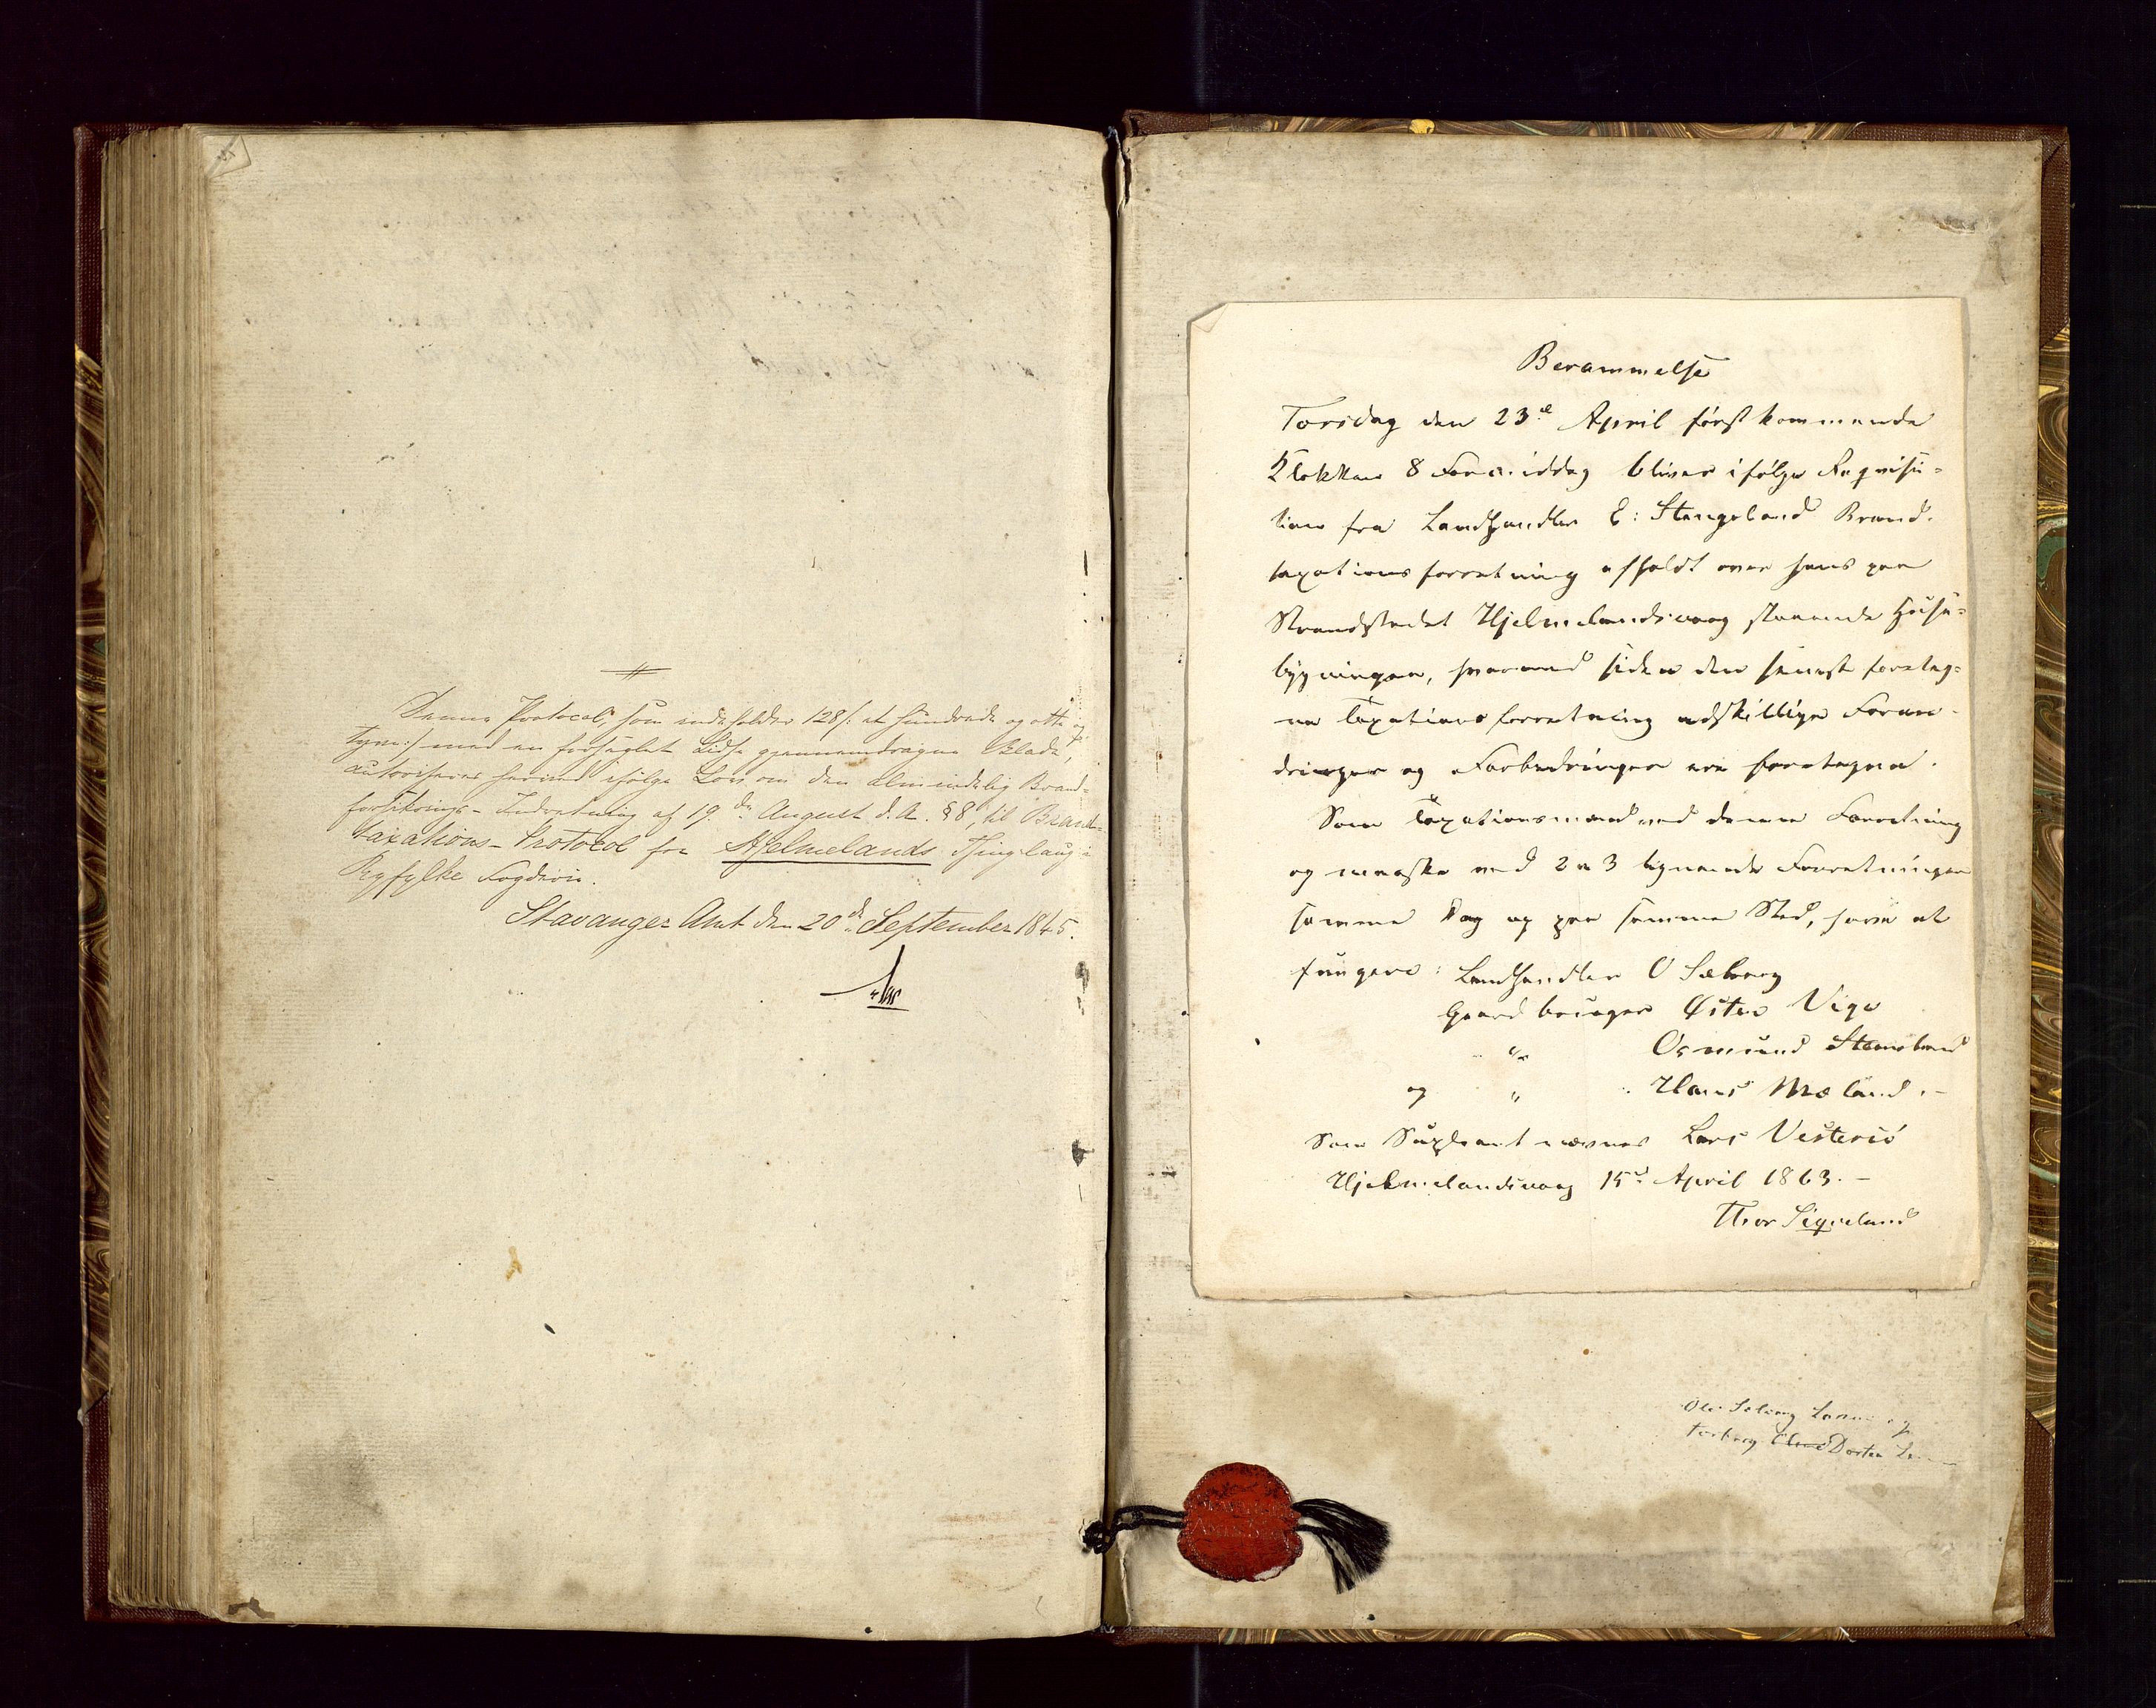 Denne Protocol, som indeholder 128/: et hundrede og otte og
tyve:/ med en forseglet Lidse gjennemdragne Blade,
autoriseres herved ifølge Lov om den almindelig Brand-
forsikrings-Indretning af 19de August d.A. §8, til Brand-
taxations-Protocol for Hjelmelands Thinglaug i
Ryfylke Fogderie.
Stavanger Amt den 20de September 1845.
Berammelse
Torsdag den 23de April førstkommende
Klokken 8 Formiddag bliver ifølge Reqvisi-
tion fra Landhandler E: Stengeland Brand-
taxationsforretning afholdt over hans paa
Strandstedet Hjelmelandsvaag staaende Huse-
bygninger, hvorved siden den seneste foretag-
ne Taxationsforretning adskillige Foran-
dringer og Forbedringer ere foretagne.
Som Taxationsmænd ved denne Forretning
og maaske ved 2 a 3 lignende Forretninger
samme Dag og paa samme Sted, have at
fungere: Landhandler O Sæbøe
Gaardbruger Østen Viga
" Osmund Steensland
og " Hans Mæland.-
Som Supleant nævnes Lars Vestersø
Hjelmelandsvaag 15de April 1863.-
Thor Siqveland
Ole
Dorten